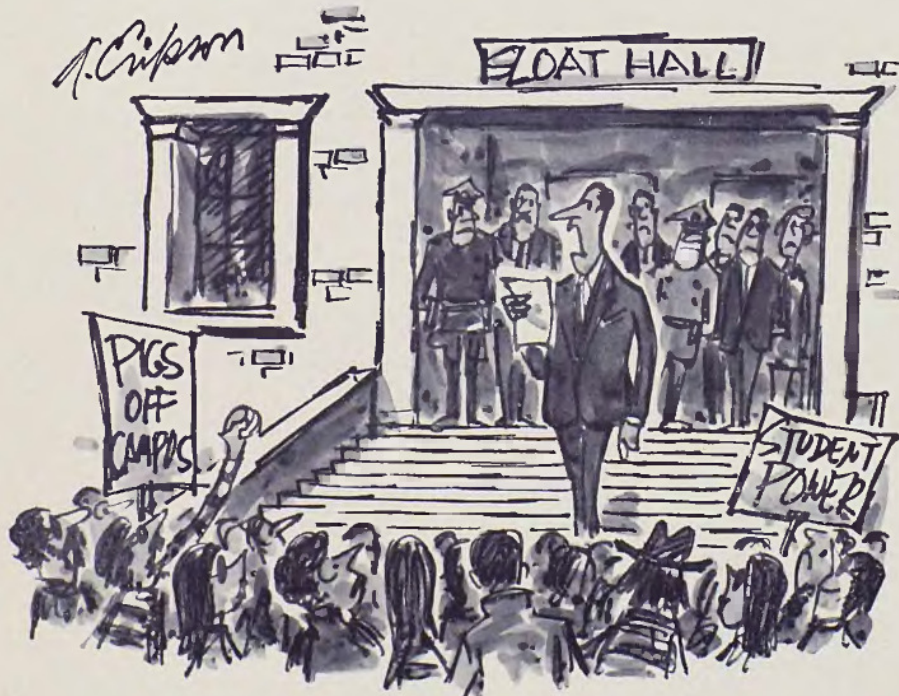 SLOAT HALL
PIGS
OFF
CAMPUS
STUDENT
POWER